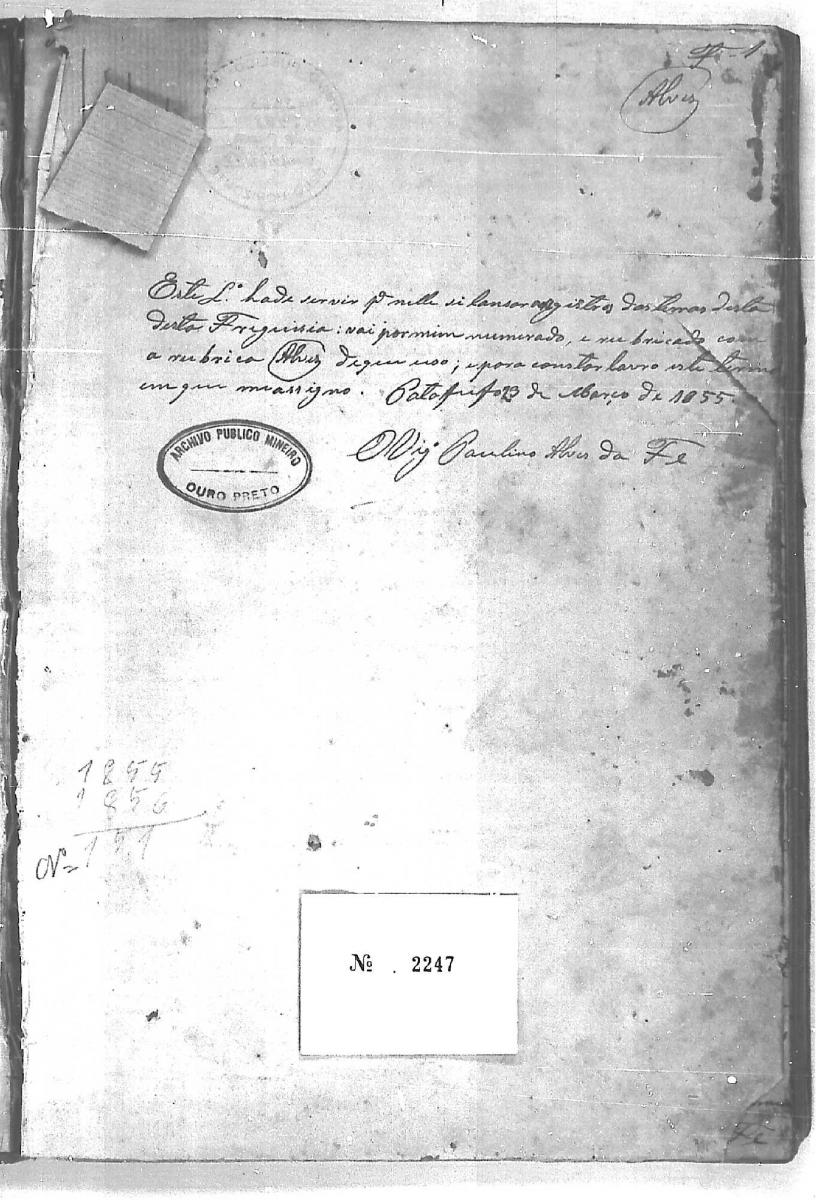 Fl. 1
Alves
Este L.º hade servir pª nelle si lansar registros das terras desta
desta Freguisia: vai por mim numerado, e rubricado com
a rubrica Alves de que uso; e para constar lavro este termo
em que me assigno. Patafufo 23 de Março de 1855
Vigº Paulino Alves da Fé
ARCHIVO PUBLICO MINEIRO
OURO PRETO
1855
1856
Nº 151
Nº 2247
Fé